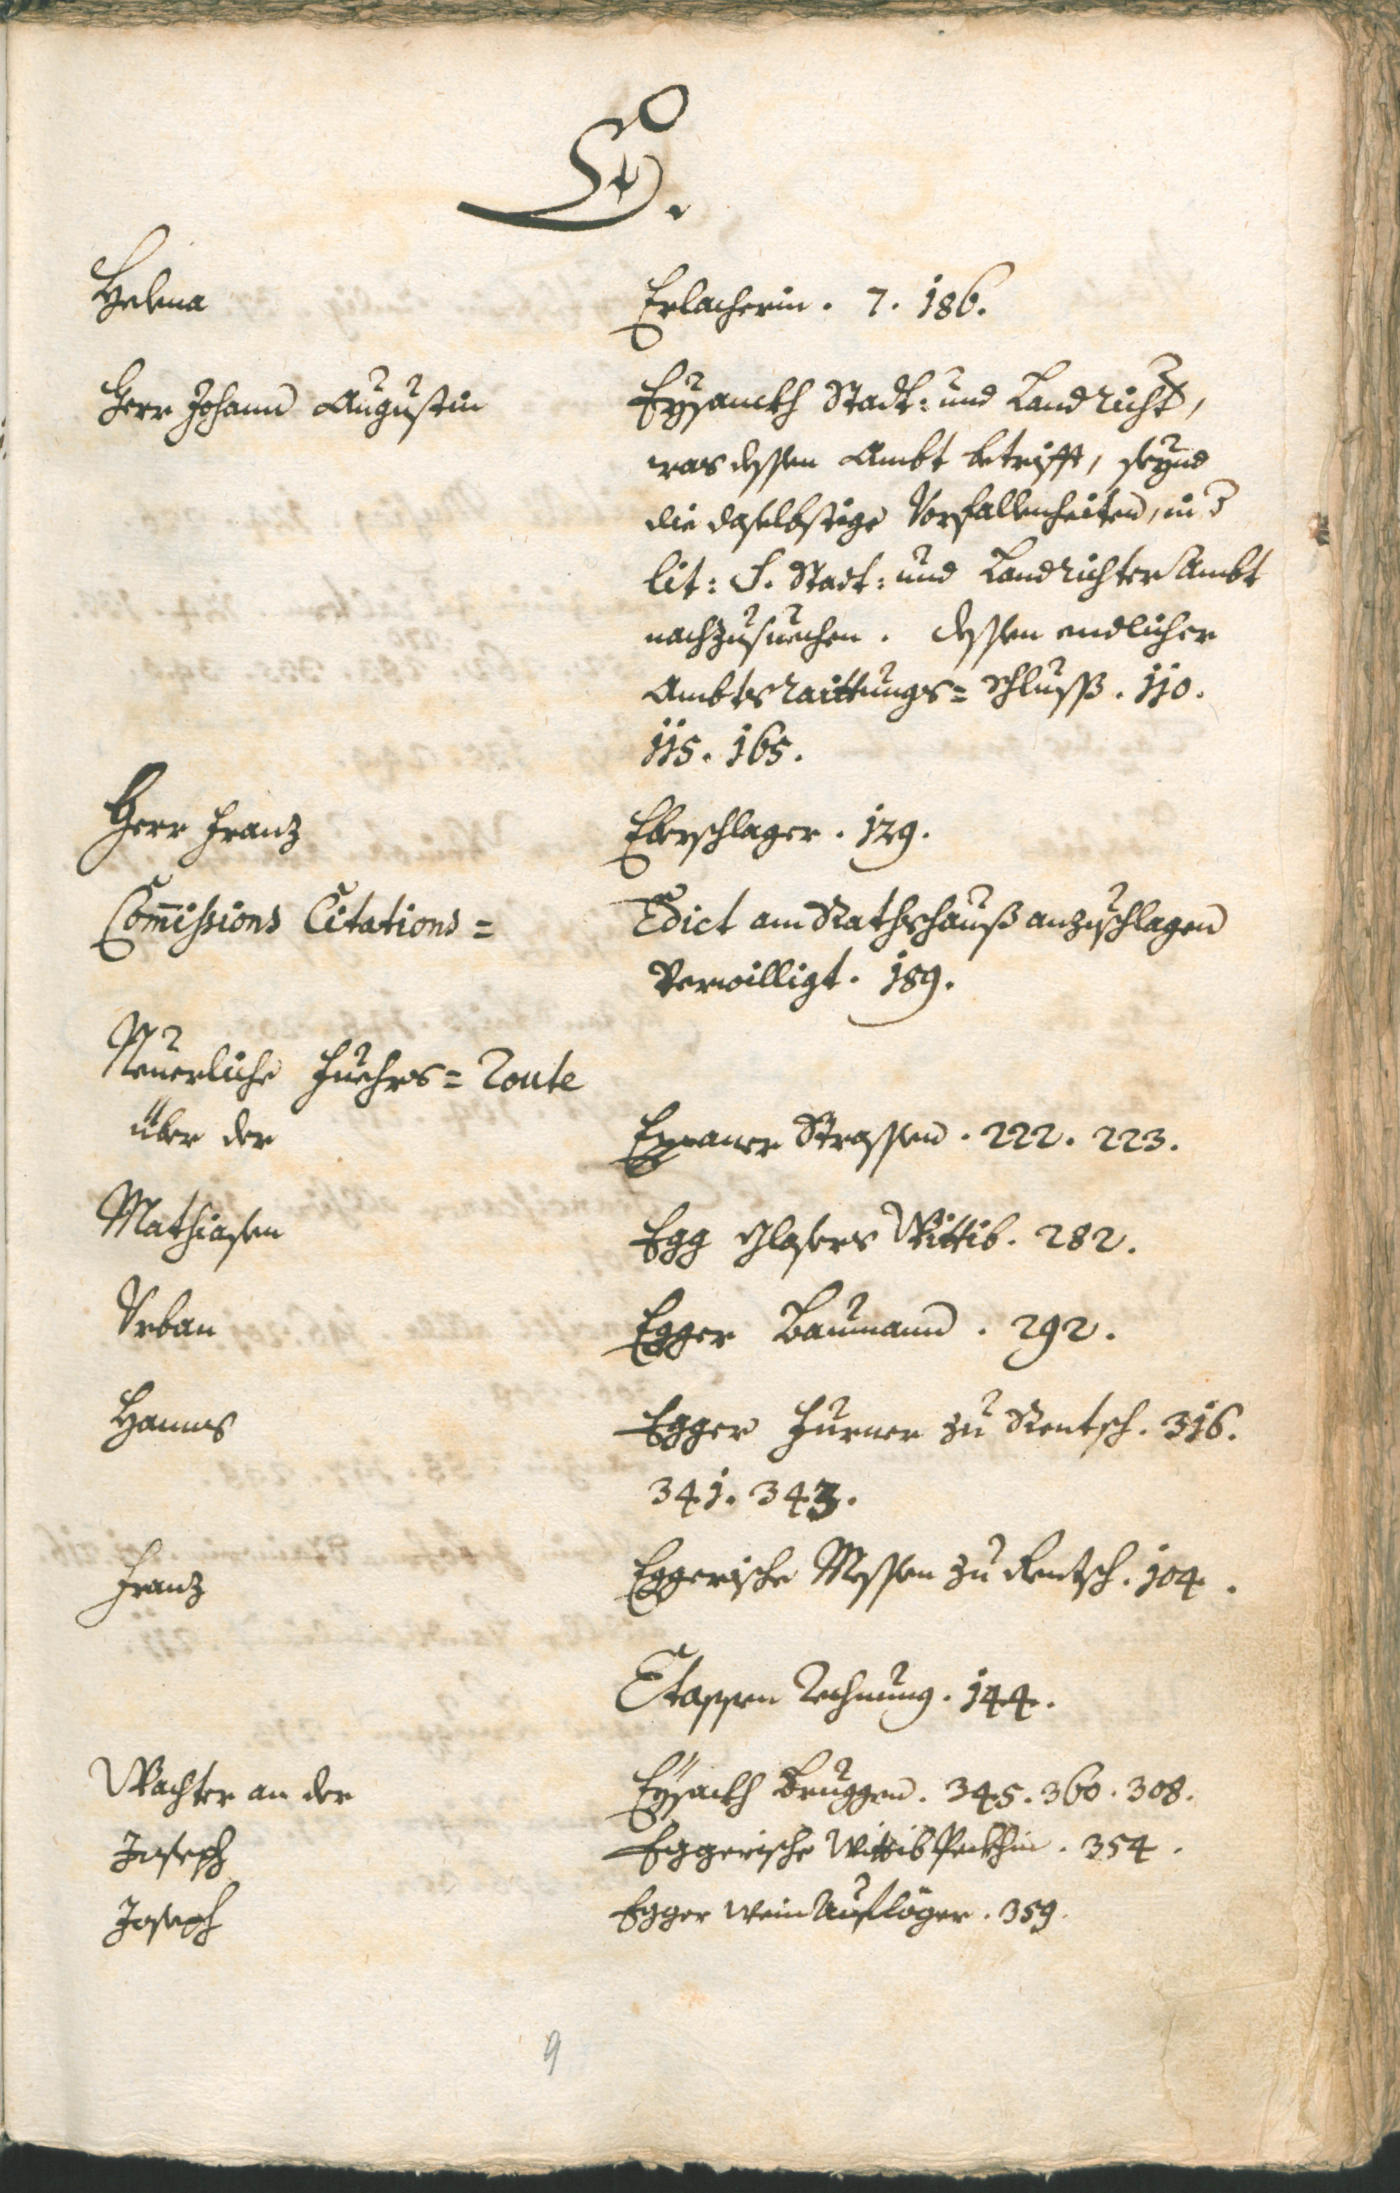 E.
Helena Erlacherin. 7. 186.
Herr Johann Augustin Eysanckh Stadt: und Landricht,
was dessen Ambt betrifft, seynd
die daselbstige Vorfallenheiten, in
lit: S. Stadt: und Landrichter Ambt
nachzusuechen. dessen endlicher
Ambtsraittungs= Schlusß. 110.
115. 165.
Herr Franz Eberschlager. 129.
Commissions Citations= Edict am Rathshauß anzuschlagen
verwilligt. 189.
Neuerliche Fuehrs= Route
über der Eppaner Strassen. 222. 223.
Mathiasen Egg Glasers Wittib. 282.
Urban Egger Baumann. 292.
Hanns Egger Furner zu Rentsch. 316.
341. 343.
Franz Eggerische Messen zu Rentsch. 104.
Etappen Rechnung. 144.
Wachter an der Eysackh Bruggen. 345. 360. 308.
Joseph Eggerische Wittib Peckhin. 354.
Joseph Egger Wein Aufloger. 359.
9